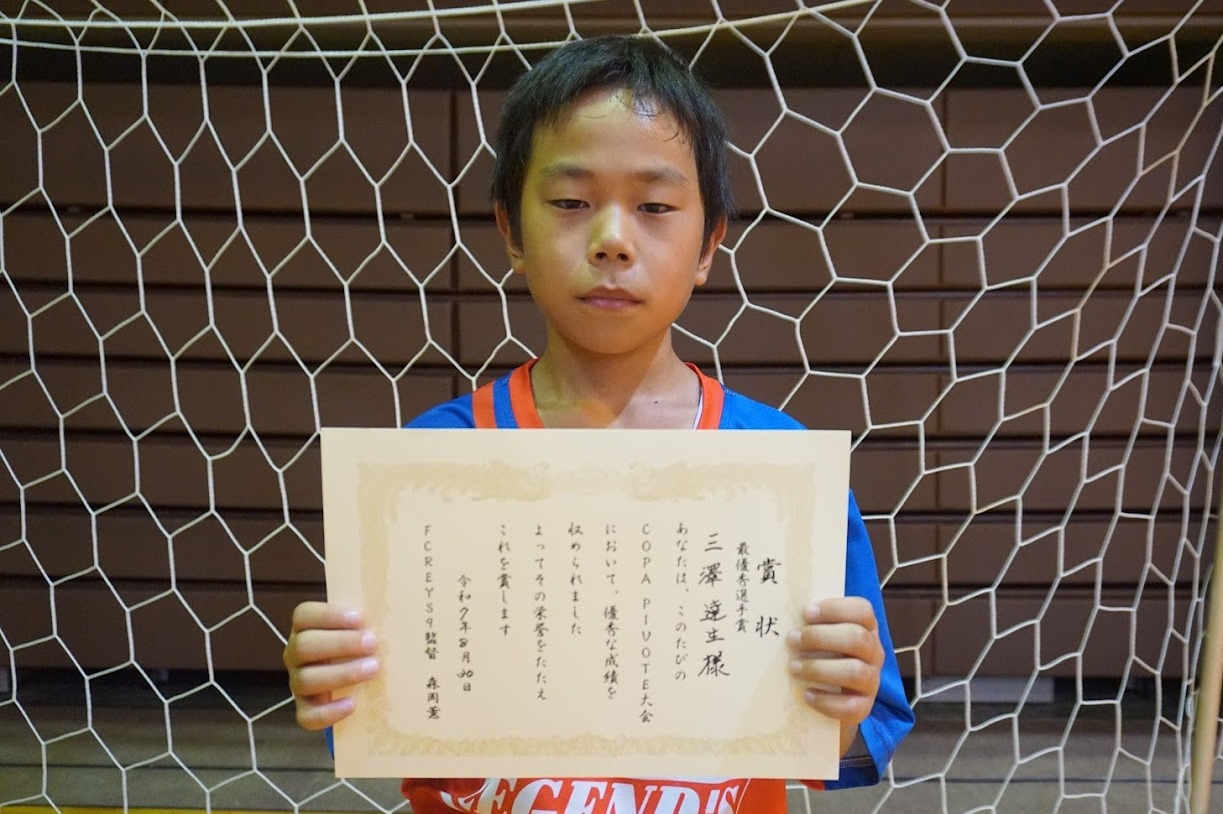 賞状
最優秀選手賞
三澤達生様
あなたは、このたびの
COPA PIVOTE大会
において、優秀な成績を
収められました
よってその栄誉をたたえ
これを賞します
令和7年8月30日
FCREYS9監督 森岡薫
LEGEND'S